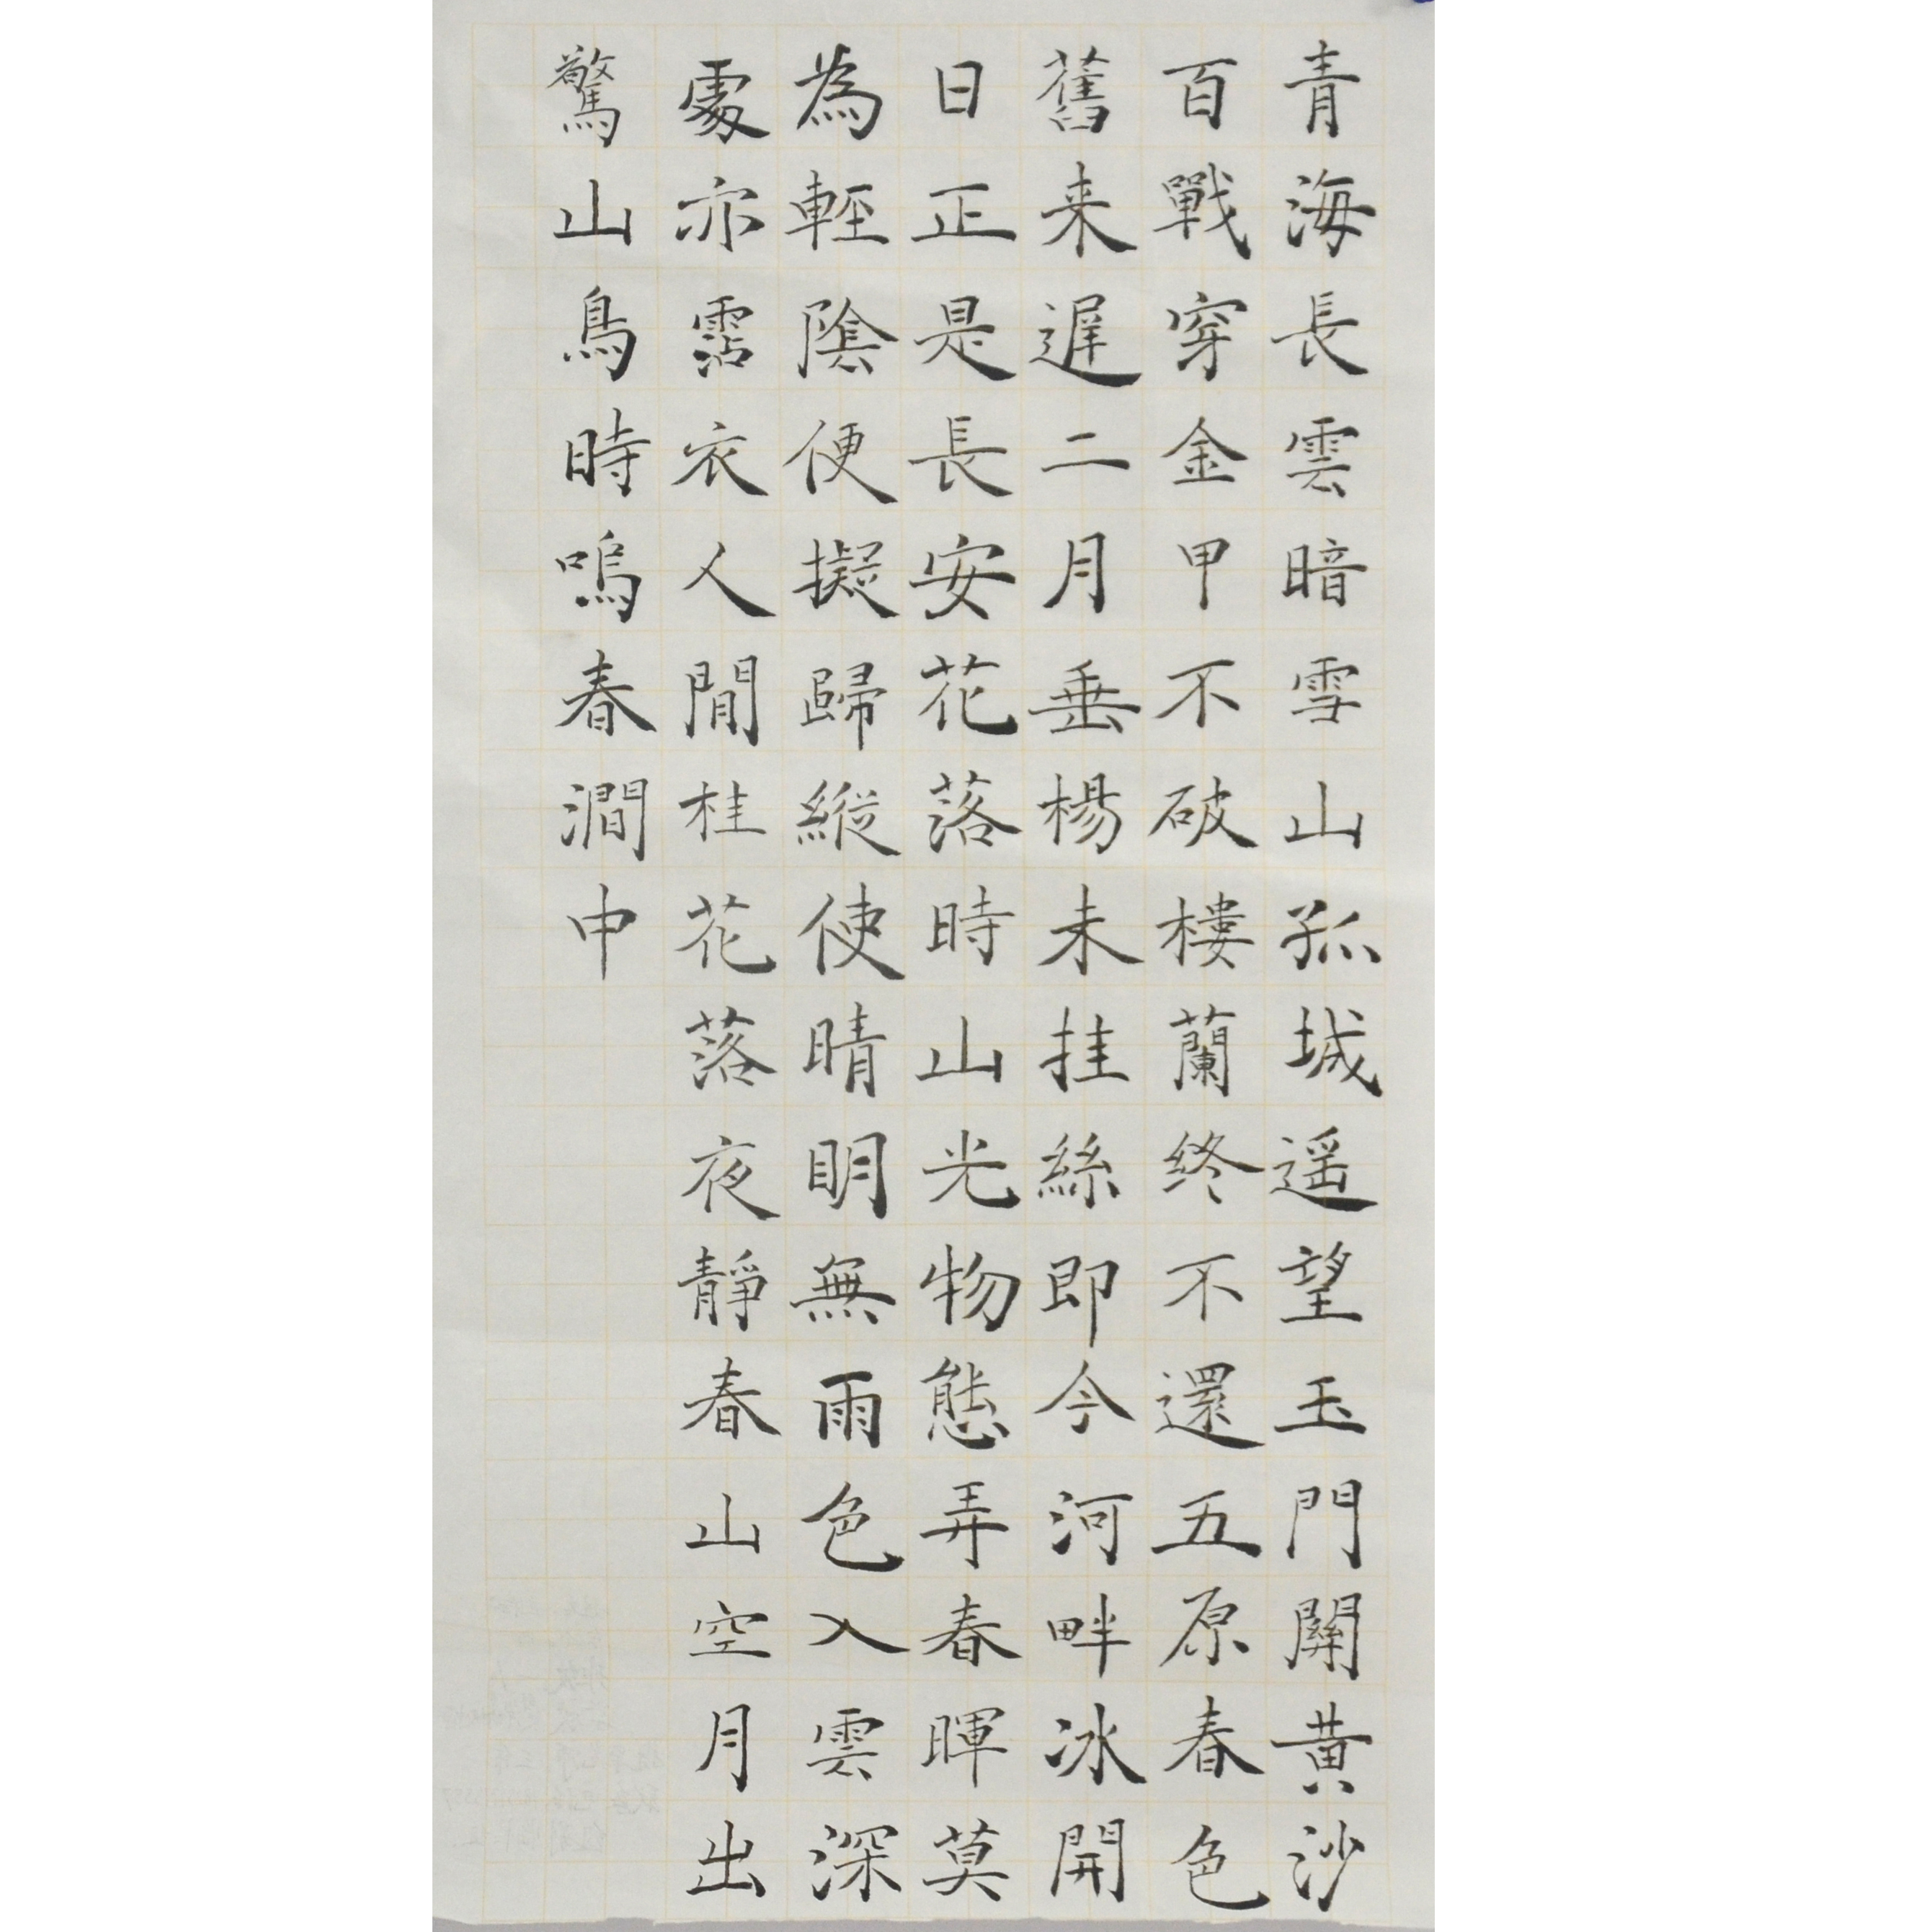 青海長雲暗雪山孤城遥望玉門關黄沙
百戰穿金甲不破樓蘭终不還五原春色
舊来遲二月垂楊未挂絲即今河畔冰開
日正是長安花落時山光物態弄春暉莫
為輕陰便擬歸縱使晴明無雨色入雲深
處亦霑衣人閒桂花落夜靜春山空月出
驚山鳥時鳴春澗中